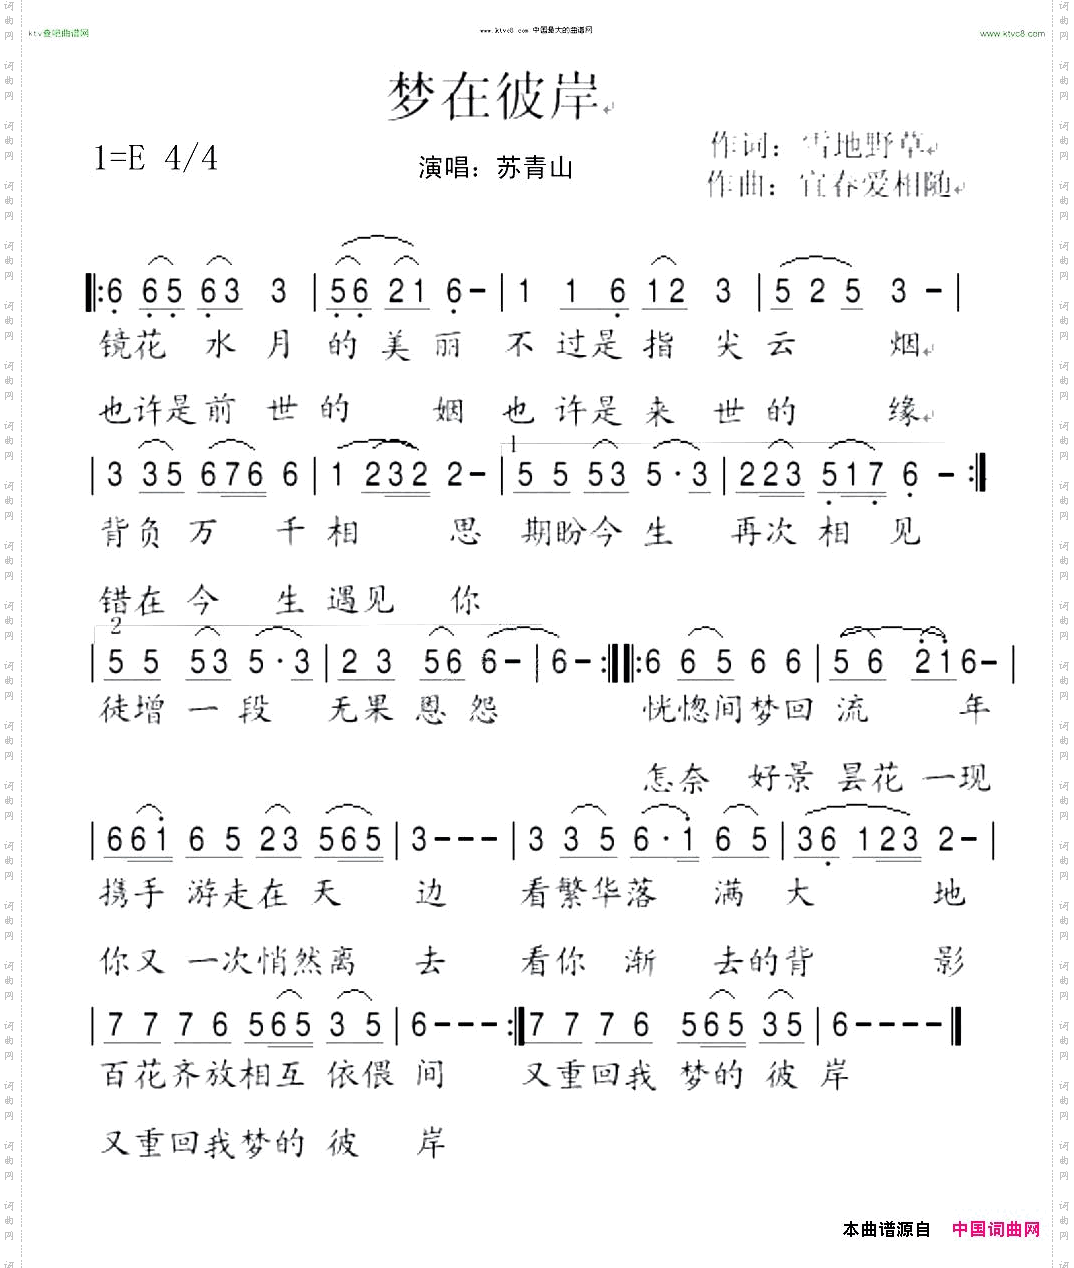 ktv叁吧曲谱网
www.ktvc8.com 中国最大的曲谱网
www.ktvc8.com
梦在彼岸
1=E 4/4
演唱：苏青山
作词：雪地野草
作曲：宜春爱相随
6 6 5 6 3 3 | 5 6 2 1 6 - | 1 1 6 1 2 3 | 5 2 5 3 - |
镜花 水 月 的 美 丽 不 过是 指 尖 云 烟
也许是 前 世 的 姻 也 许是 来 世 的 缘
3 3 5 6 7 6 6 | 1 2 3 2 2 - | 1 5 5 5 3 5 · 3 | 2 2 3 5 1 7 6 - :
背负 万 千 相 思 期盼今 生 再次 相 见
错在 今 生 遇见 你
2
5 5 5 3 5 · 3 | 2 3 5 6 6 - | 6 - : : 6 6 5 6 6 | 5 6 2 1 6 - |
徒增 一 段 无果 恩 怨 恍惚间梦回 流 年
怎奈 好景 昙花 一现
6 6 1 6 5 2 3 5 6 5 | 3 - - - | 3 3 5 6 · 1 6 5 | 3 6 1 2 3 2 - |
携手 游走在 天 边 看繁华落 满 大 地
你又 一次悄然离 去 看你 渐 去的背 影
7 7 7 6 5 6 5 3 5 | 6 - - - : 7 7 7 6 5 6 5 3 5 | 6 - - - -
百花齐放相互 依偎 间 又重回我 梦的 彼 岸
又重回我梦的 彼 岸
本曲谱源自 中国词曲网